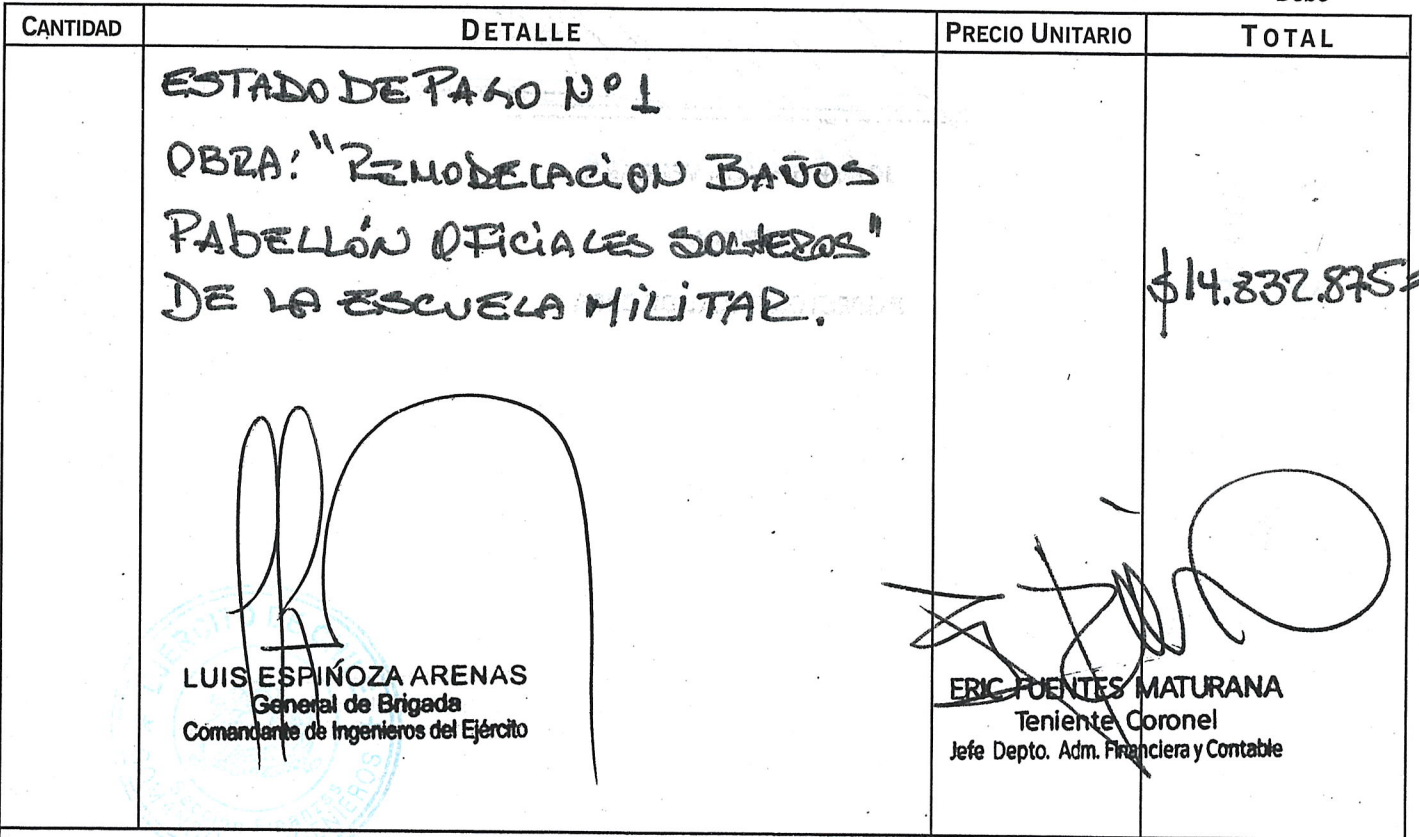 CANTIDAD DETALLE PRECIO UNITARIO TOTAL
ESTADO DE PAGO Nº 1
OBRA: "REMODELACION BAÑOS
PABELLÓN OFICIALES SOLTEROS"
DE LA ESCUELA MILITAR.
$14.832.875=
LUIS ESPINOZA ARENAS
General de Brigada
Comandante de Ingenieros del Ejército
ERIC FUENTES MATURANA
Teniente Coronel
Jefe Depto. Adm. Financiera y Contable